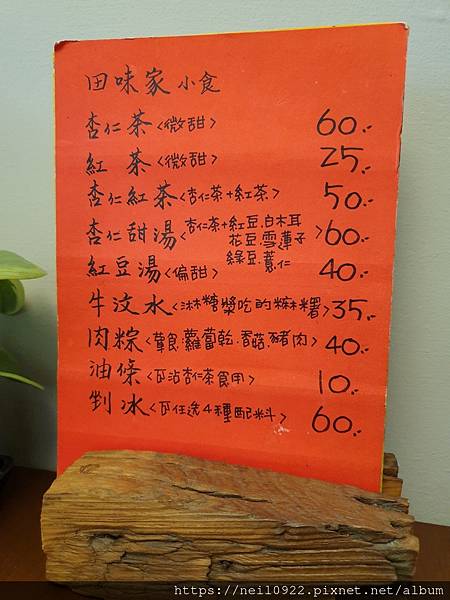 田味家 小食
杏仁茶<微甜> 60.-
紅 茶<微甜> 25.-
杏仁紅茶<杏仁茶+紅茶> 50.-
杏仁甜湯<杏仁茶+紅豆.白木耳 花豆.雪蓮子 綠豆.薏仁> 60.-
紅豆湯<偏甜> 40.-
牛汶水<淋糖漿吃的麻糬> 35.-
肉粽<葷食.蘿蔔乾.香菇.豬肉> 40.-
油條<可沾杏仁茶食用> 10.-
剉冰<可任選4種配料> 60.-
https://neil0922.pixnet.net/album